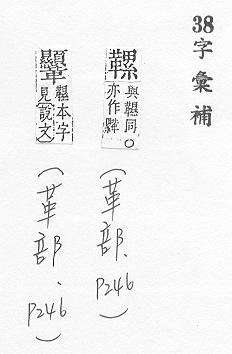 38 字彙補
與韅同○
亦作
(革部、P246)
韅本字
見(說文)
(革部、P246)